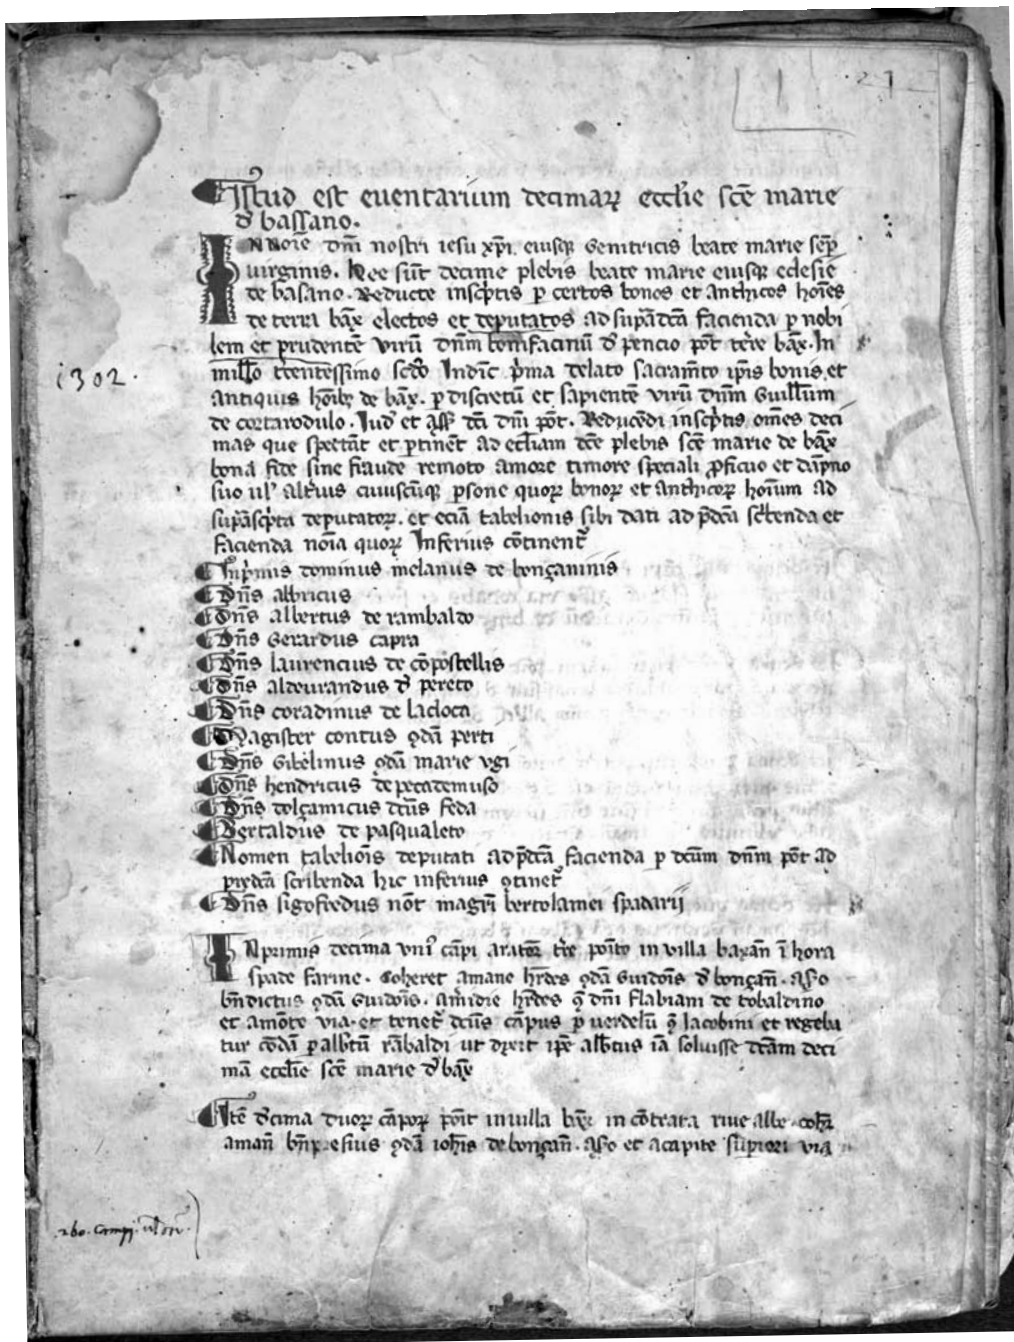 Istud est euentarium decimaꝝ ecclie sce marie
đ bassano.
In noie dni nostri iesu xp̄i. eiusqꝫ genitricis beate marie sep̄
uirginis. Hee sūt decime plebis beate marie eiusqꝫ eclesie
de basano. Reducte inscptis p certos bonos et anthicos hoīes
de terra bax̄ electos et deputatos ad sup̄adcta facienda p nobi
lem et prudentē virū dnm bonifaciū đ pencio pōt tere bax̄. In
1302.
millo trentessimo scdo Indic̄ p̄ma delato sacramto ip̄is bonis et
antiquis hoībꝫ de bax̄. p discretū et sapientē virū dnm Guillum
de cortarodulo. Iud et ass dcī dnī pōt. Reducēdi inscptis omēs deci
mas que spectāt et ptinēt ad eccliam dcē plebis scē marie de bax̄
bona fide sine fraude remoto amore timore speciali pficuo et dāpno
suo ul alterius cuiuscūqꝫ psone quoꝝ bonoꝝ et anthicoꝝ hoīum ad
sup̄ascpta deputatoꝝ. et eciā tabelionis sibi dati ad p̄dca sc̄benda et
facienda noīa quoꝝ Inferius cōtinent
Inp̄mis dominus melanus de bonçaminis
Dn̄s albricus
Dn̄s albertus de rambaldo
Dn̄s Gerardus capra
Dn̄s laurencius de cōpostellis
Dn̄s aldeurandus đ pereto
Dn̄s coradinus de ladoca
Magister contus qdā perti
Dn̄s Gibelinus qdā marie vgi
Dn̄s hendricus de pecademuso
Dn̄s dolçamicus dcūs feda
Bertaldus de pasqualeto
Nomen tabelioīs deputati ad p̄dcā facienda p dcūm dnm pōt ad
p̄xdca scribenda hic inferius ꝯtinet
Dn̄s sigofredus nōt magri bertolamei spadarij
Inprimis decima vni cāpi arator tre pōito in villa baxān ī hora
spade farine. Coheret amane hr̄des qdā Guidoīs đ bonçan.
bn̄dictus qdā Guidoīs. am̄idie hr̄des q dnī flabiani de tobaldino
et amōte via. et tenet dcūs cāpus p uerdelū q Iacobini et regeba
tur cōdā p albtū rābaldi ut dixit ip̄e albtus iā soluisse dcam deci
mā ecclīe scē marie đ bax̄
Itē đcima duoꝝ cāpoꝝ pōit in uilla bax̄ in cōtrata riue albe. coh
aman qdā ioh̄is de bonçan. et acapite supiori via
260. campi